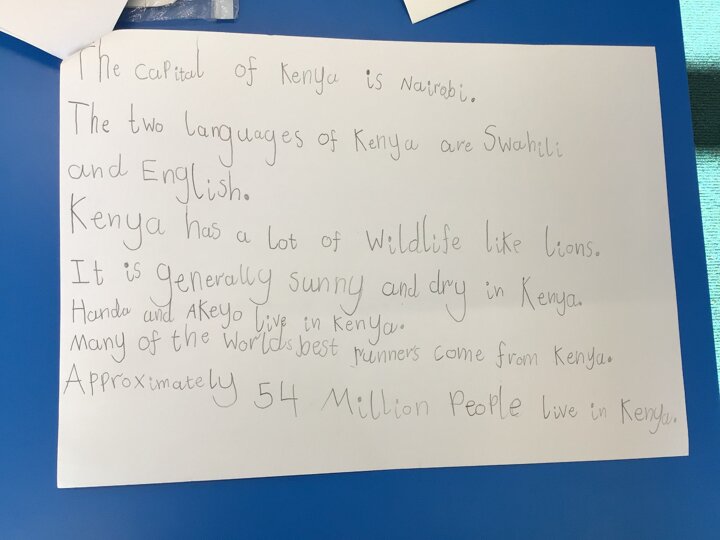 The capital of Kenya is Nairobi.
The two languages of Kenya are Swahili
and English.
Kenya has a lot of wildlife like lions.
It is generally sunny and dry in Kenya.
Handa and AKeyo live in Kenya.
Many of the worlds best runners come from Kenya.
Approximately 54 Million People live in Kenya.